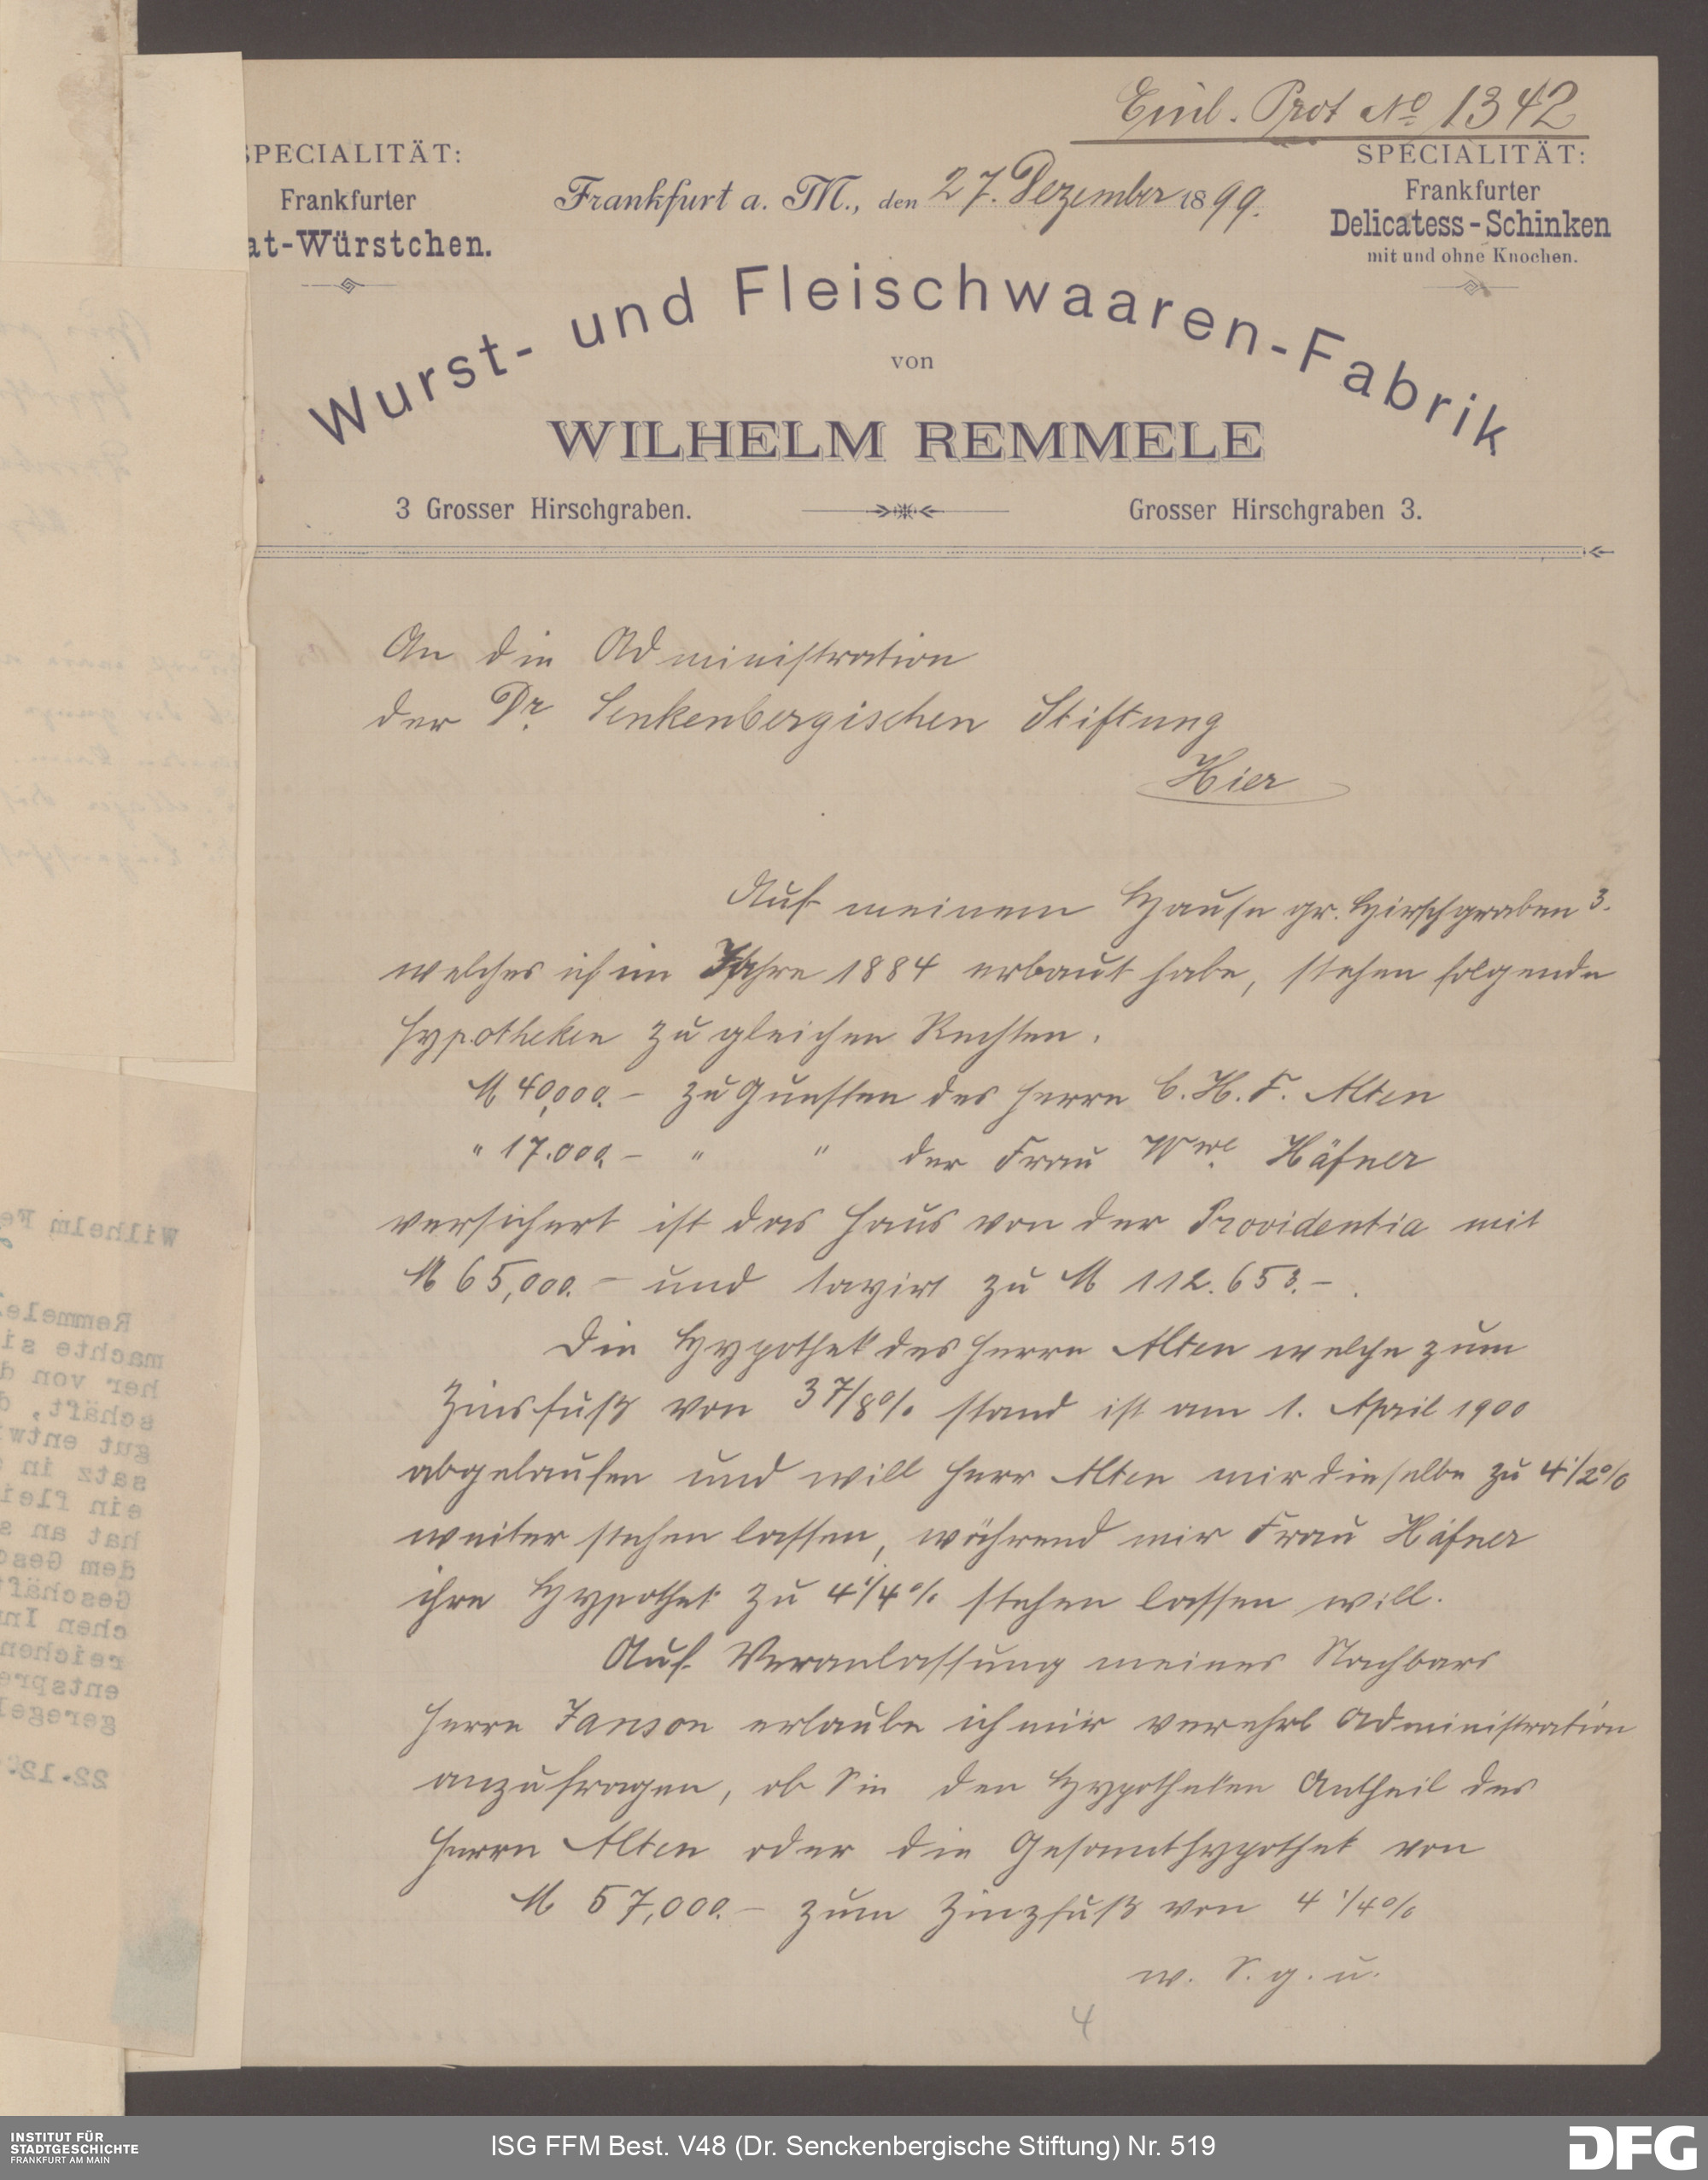 Einl. Prot No 1342
SPECIALITÄT:
Frankfurter
at-Würstchen.
Frankfurt a. M., den 27. Dezember 1899.
SPECIALITÄT:
Frankfurter
Delicatess-Schinken
mit und ohne Knochen.
Wurst- und Fleischwaaren-Fabrik
von
WILHELM REMMELE
3 Grosser Hirschgraben.
Grosser Hirschgraben 3.
An die Administration
der Dr. Senkenbergischen Stiftung
Hier
Auf meinem Hause gr. Hirschgraben 3.
welches ich im Jahre 1884 erbaut habe, stehen folgende
Hypotheken zu gleichen Rechten.
M 40,000.– zu Gunsten des Herrn C. H. F. Alten
" 17.000.– " " der Frau Wwe. Häfner
versichert ist das Haus von der Providentia mit
M 65,000.– und taxirt zu M 112.653.–.
Die Hypothek des Herrn Alten welche zum
Zinsfuß von 3 7/8% stand ist am 1. April 1900
abgelaufen und will Herr Alten mir dieselbe zu 4 1/2%
weiter stehen lassen, während mir Frau Häfner
ihre Hypothek zu 4 1/4% stehen lassen will.
Auf Veranlassung meines Nachbars
Herrn Janson erlaube ich mir verehrl Administration
anzufragen, ob Sie den Hypotheken Antheil des
Herrn Alten oder die Gesammthypothek von
M 57,000.– zum Zinzfuß von 4 1/4%
w. S. g. u.
4
Wilhelm Re
Remmele
machte si
her von d
schäft, d
gut entwi
satz in
ein flei
hat an s
dem Gesc
Geschäf
chen In
reichen
entspre
geregel
22.12.
INSTITUT FÜR
STADTGESCHICHTE
FRANKFURT AM MAIN
ISG FFM Best. V48 (Dr. Senckenbergische Stiftung) Nr. 519
DFG